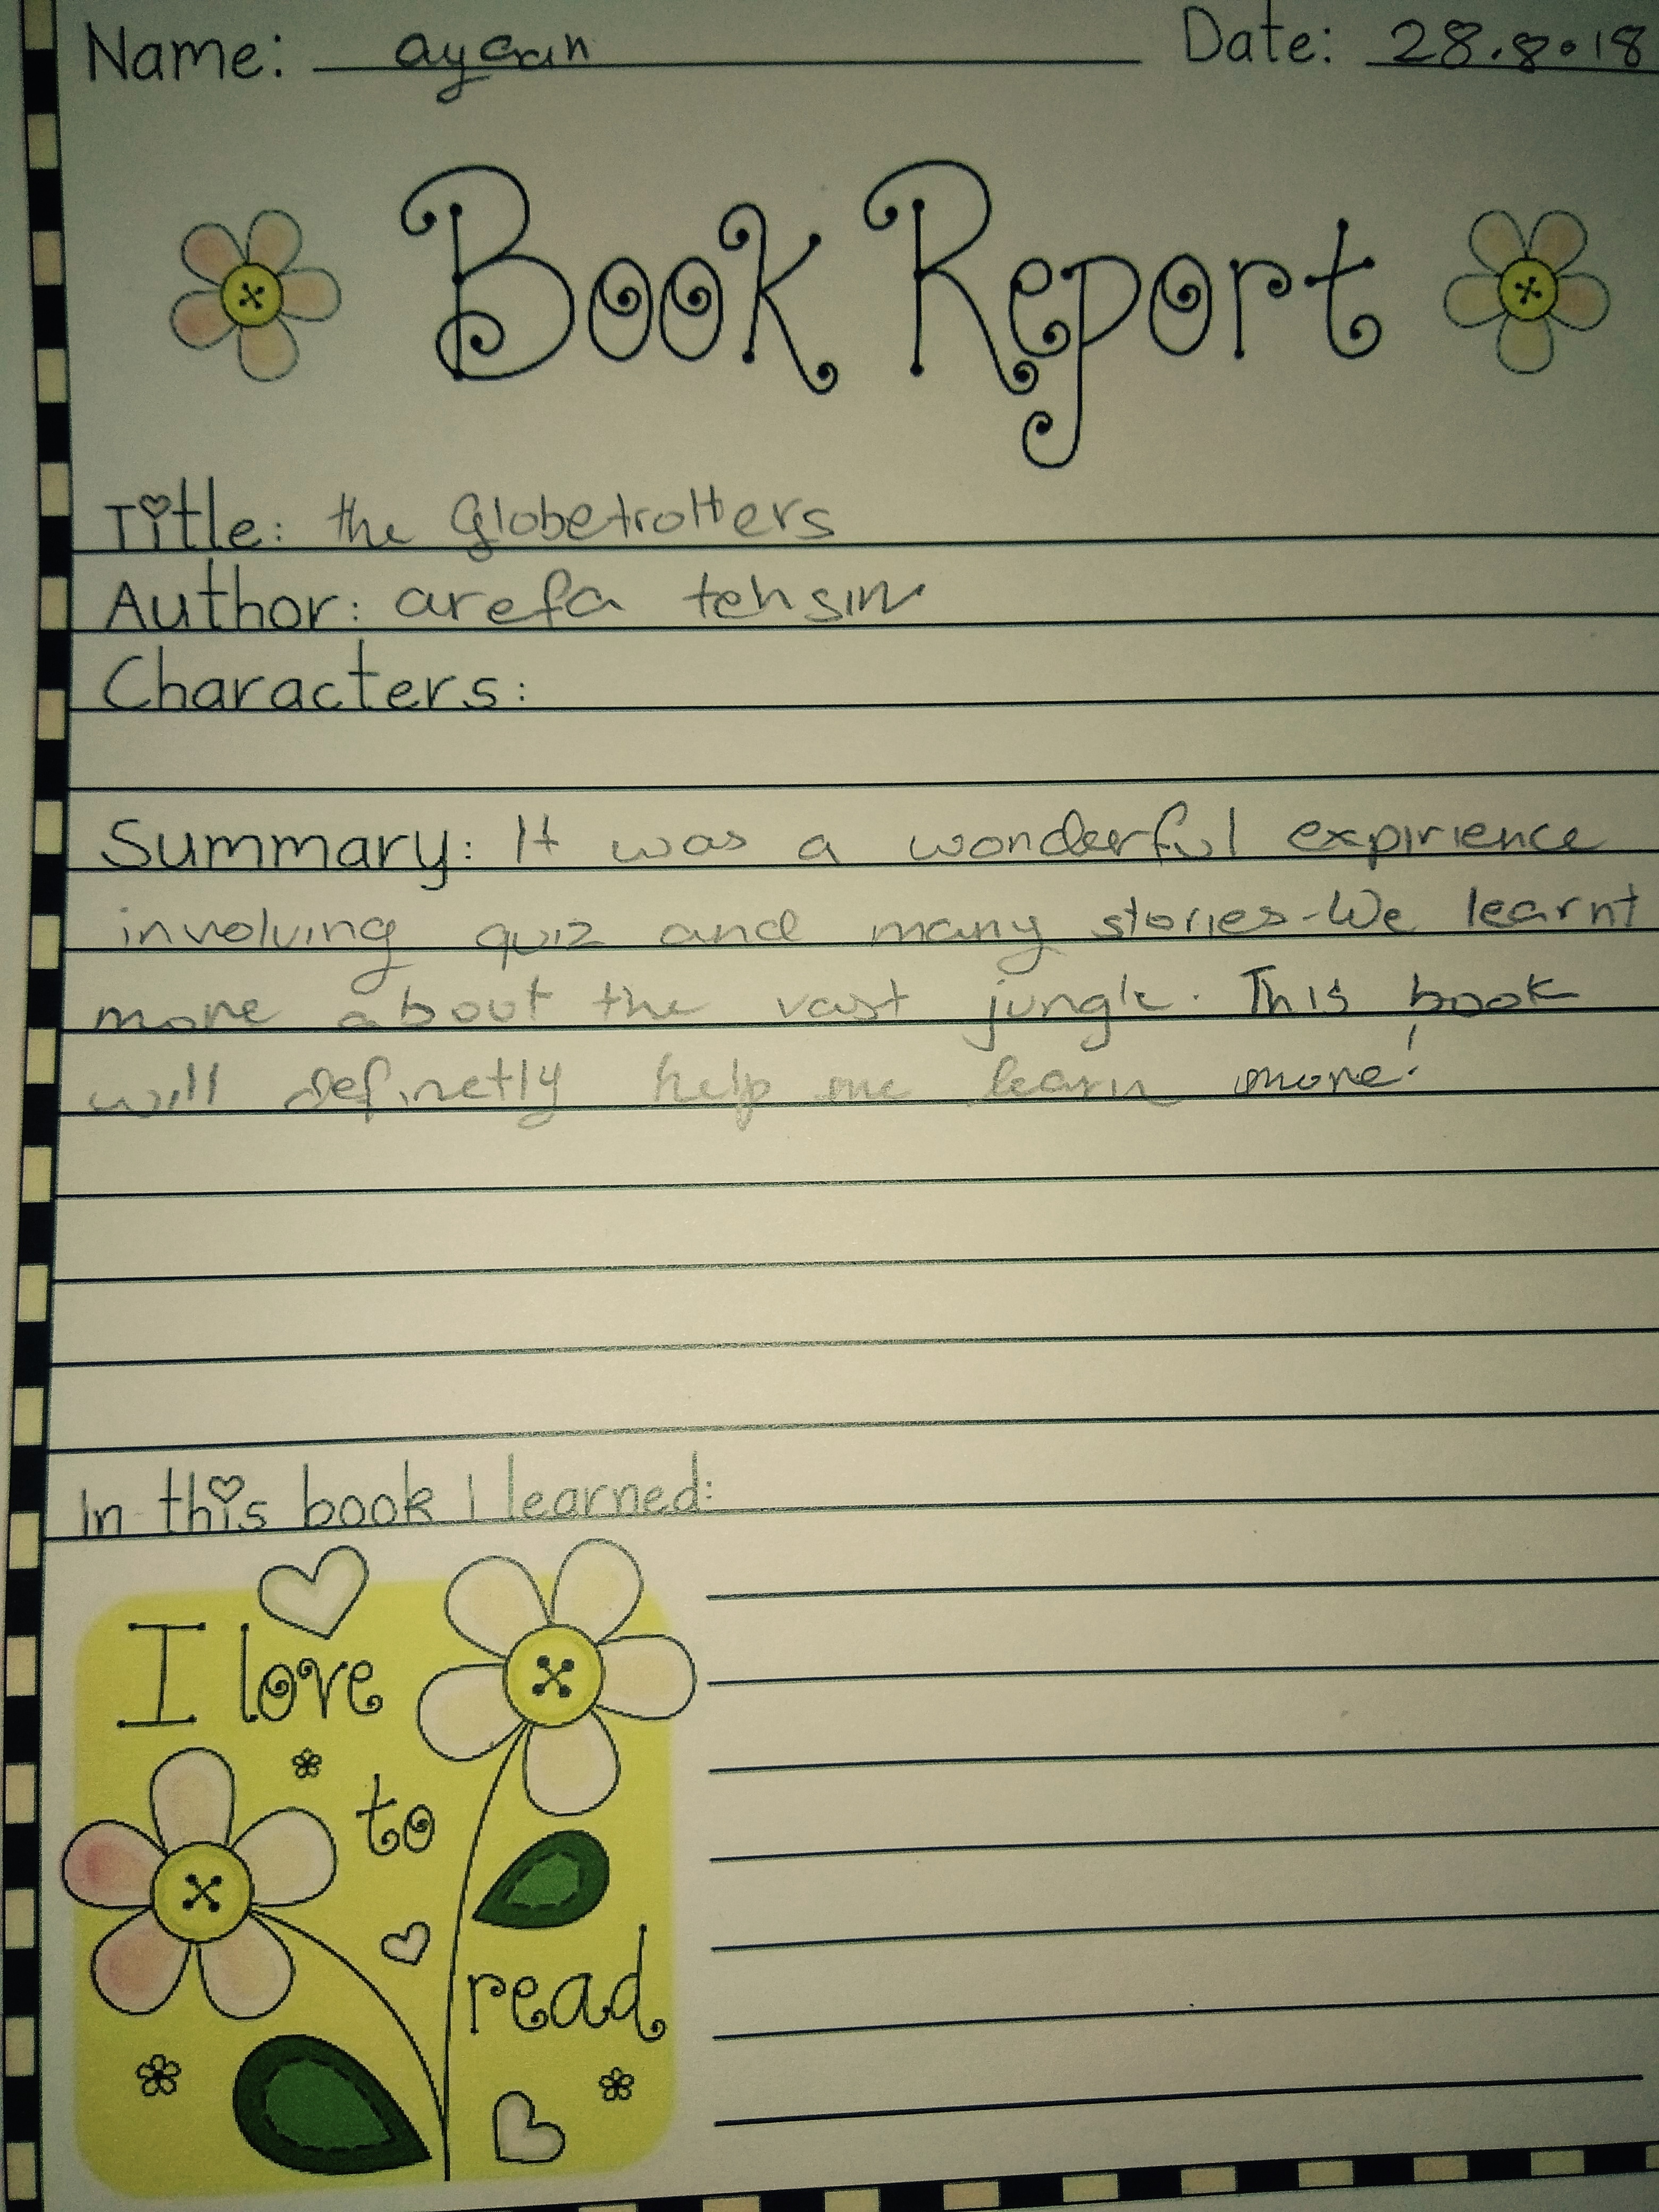 Name: ayaan Date: 28.8.18
Book Report
Title: the Globetrotters
Author: arefa tehsin
Characters:
Summary: It was a wonderful expirience
involving quiz and many stories-We learnt
more about the vast jungle. This book
will definetly help me learn more!
In this book I learned:
I love
to
read